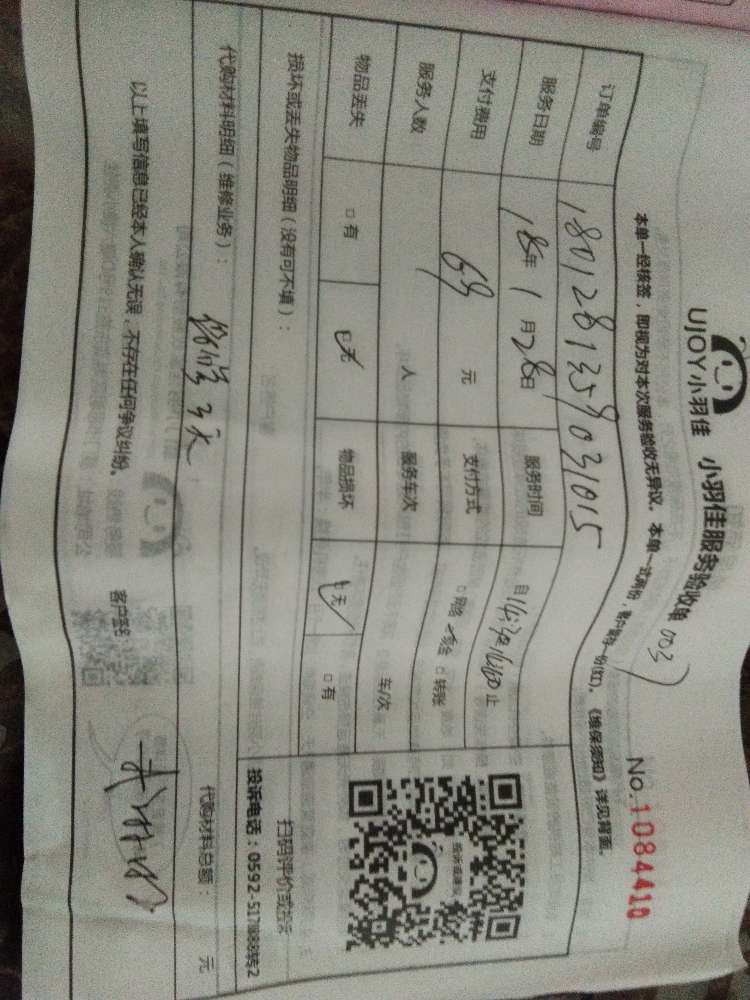 UJOY小羽佳 小羽佳服务验收单 003
No.1084410
本单一经核签，即视为对本次服务验收无异议。本单一式两份，客户留存一份(红)。《维保须知》详见背面。
订单编号 180128135903 1015
服务日期 18年1月28日 服务时间 自 至 止
支付费用 69元 支付方式 □网络 现金 □转账
服务人数 1 人 服务车次 车/次
物品丢失 □有 ☑无 物品损坏 ☑无 □有
损坏或丢失物品明细（没有可不填）：
扫码评价或投诉
投诉电话：0592-5178888转2
代购材料明细（维修业务）： 代购材料总额： 元
以上填写信息已经本人确认无误，不存在任何争议纠纷。 客户签名
投诉或建议